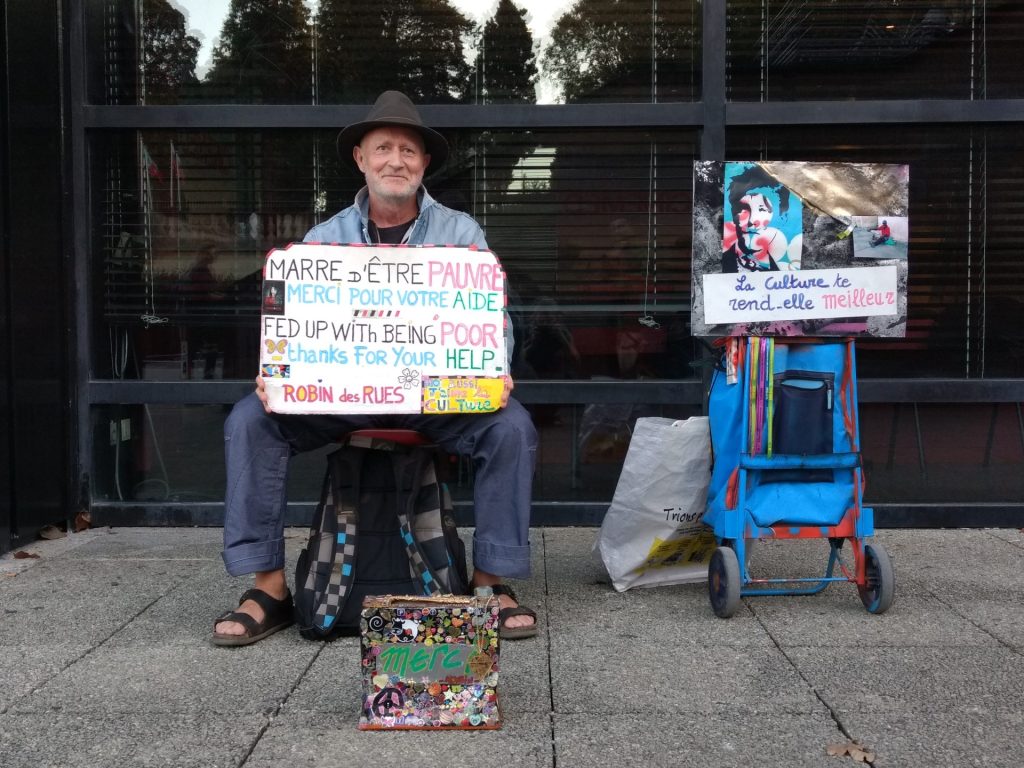 MARRE D'ÊTRE PAUVRE
MERCI POUR VOTRE AIDE.
FED UP WITH BEING POOR
thanks FOR YOUR HELP.
ROBIN des RUES
MOI AUSSI
J'AIME LA
CULTURE
La Culture te
rend-elle meilleur
Trions
MERCI